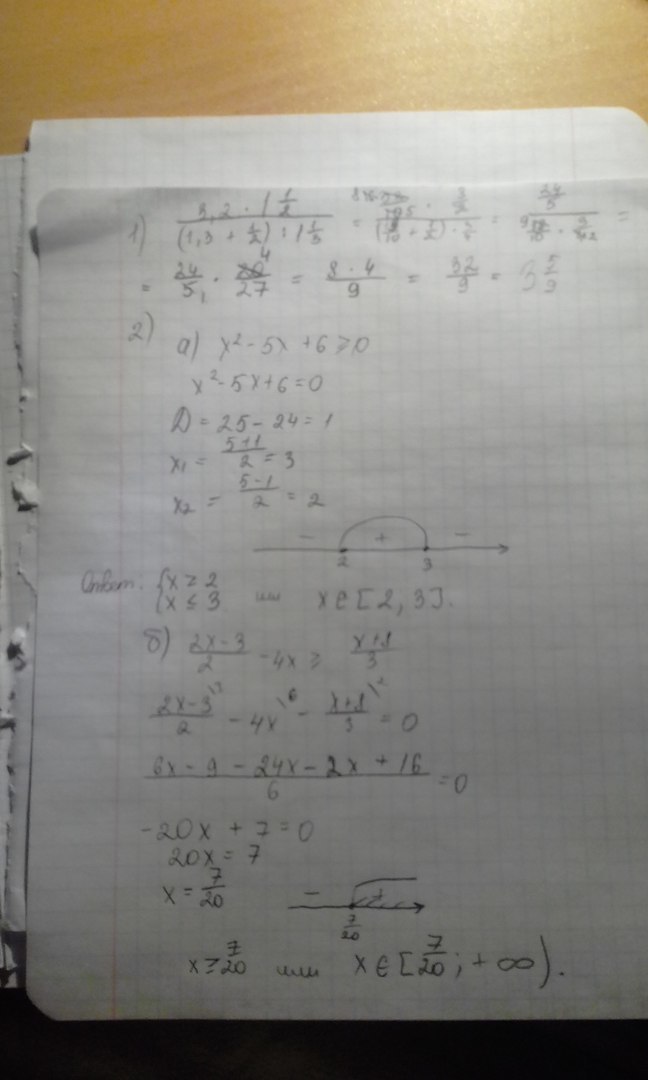 1) (3,2 · 1 1/2) / ((1,3 + 1/2) : 1 1/3) = =
= 24/5 · 20 4/27 = 8 · 4/9 = 32/9 = 3 5/9
2)
а) x² - 5x + 6 ≥ 0
x² - 5x + 6 = 0
D = 25 - 24 = 1
x₁ = (5+1)/2 = 3
x₂ = (5-1)/2 = 2
- + -
2 3
Ответ: { x ≥ 2
x ≤ 3 или x ∈ [2, 3].
б) (2x-3)/2 - 4x ≥ (x+8)/3
(2x-3)/2 - 4x \6 - (x+8)/3 \2 = 0
(6x - 9 - 24x - 2x + 16)/6 = 0
-20x + 7 = 0
20x = 7
x = 7/20
- +
7/20
x ≥ 7/20 или x ∈ [7/20; +∞).